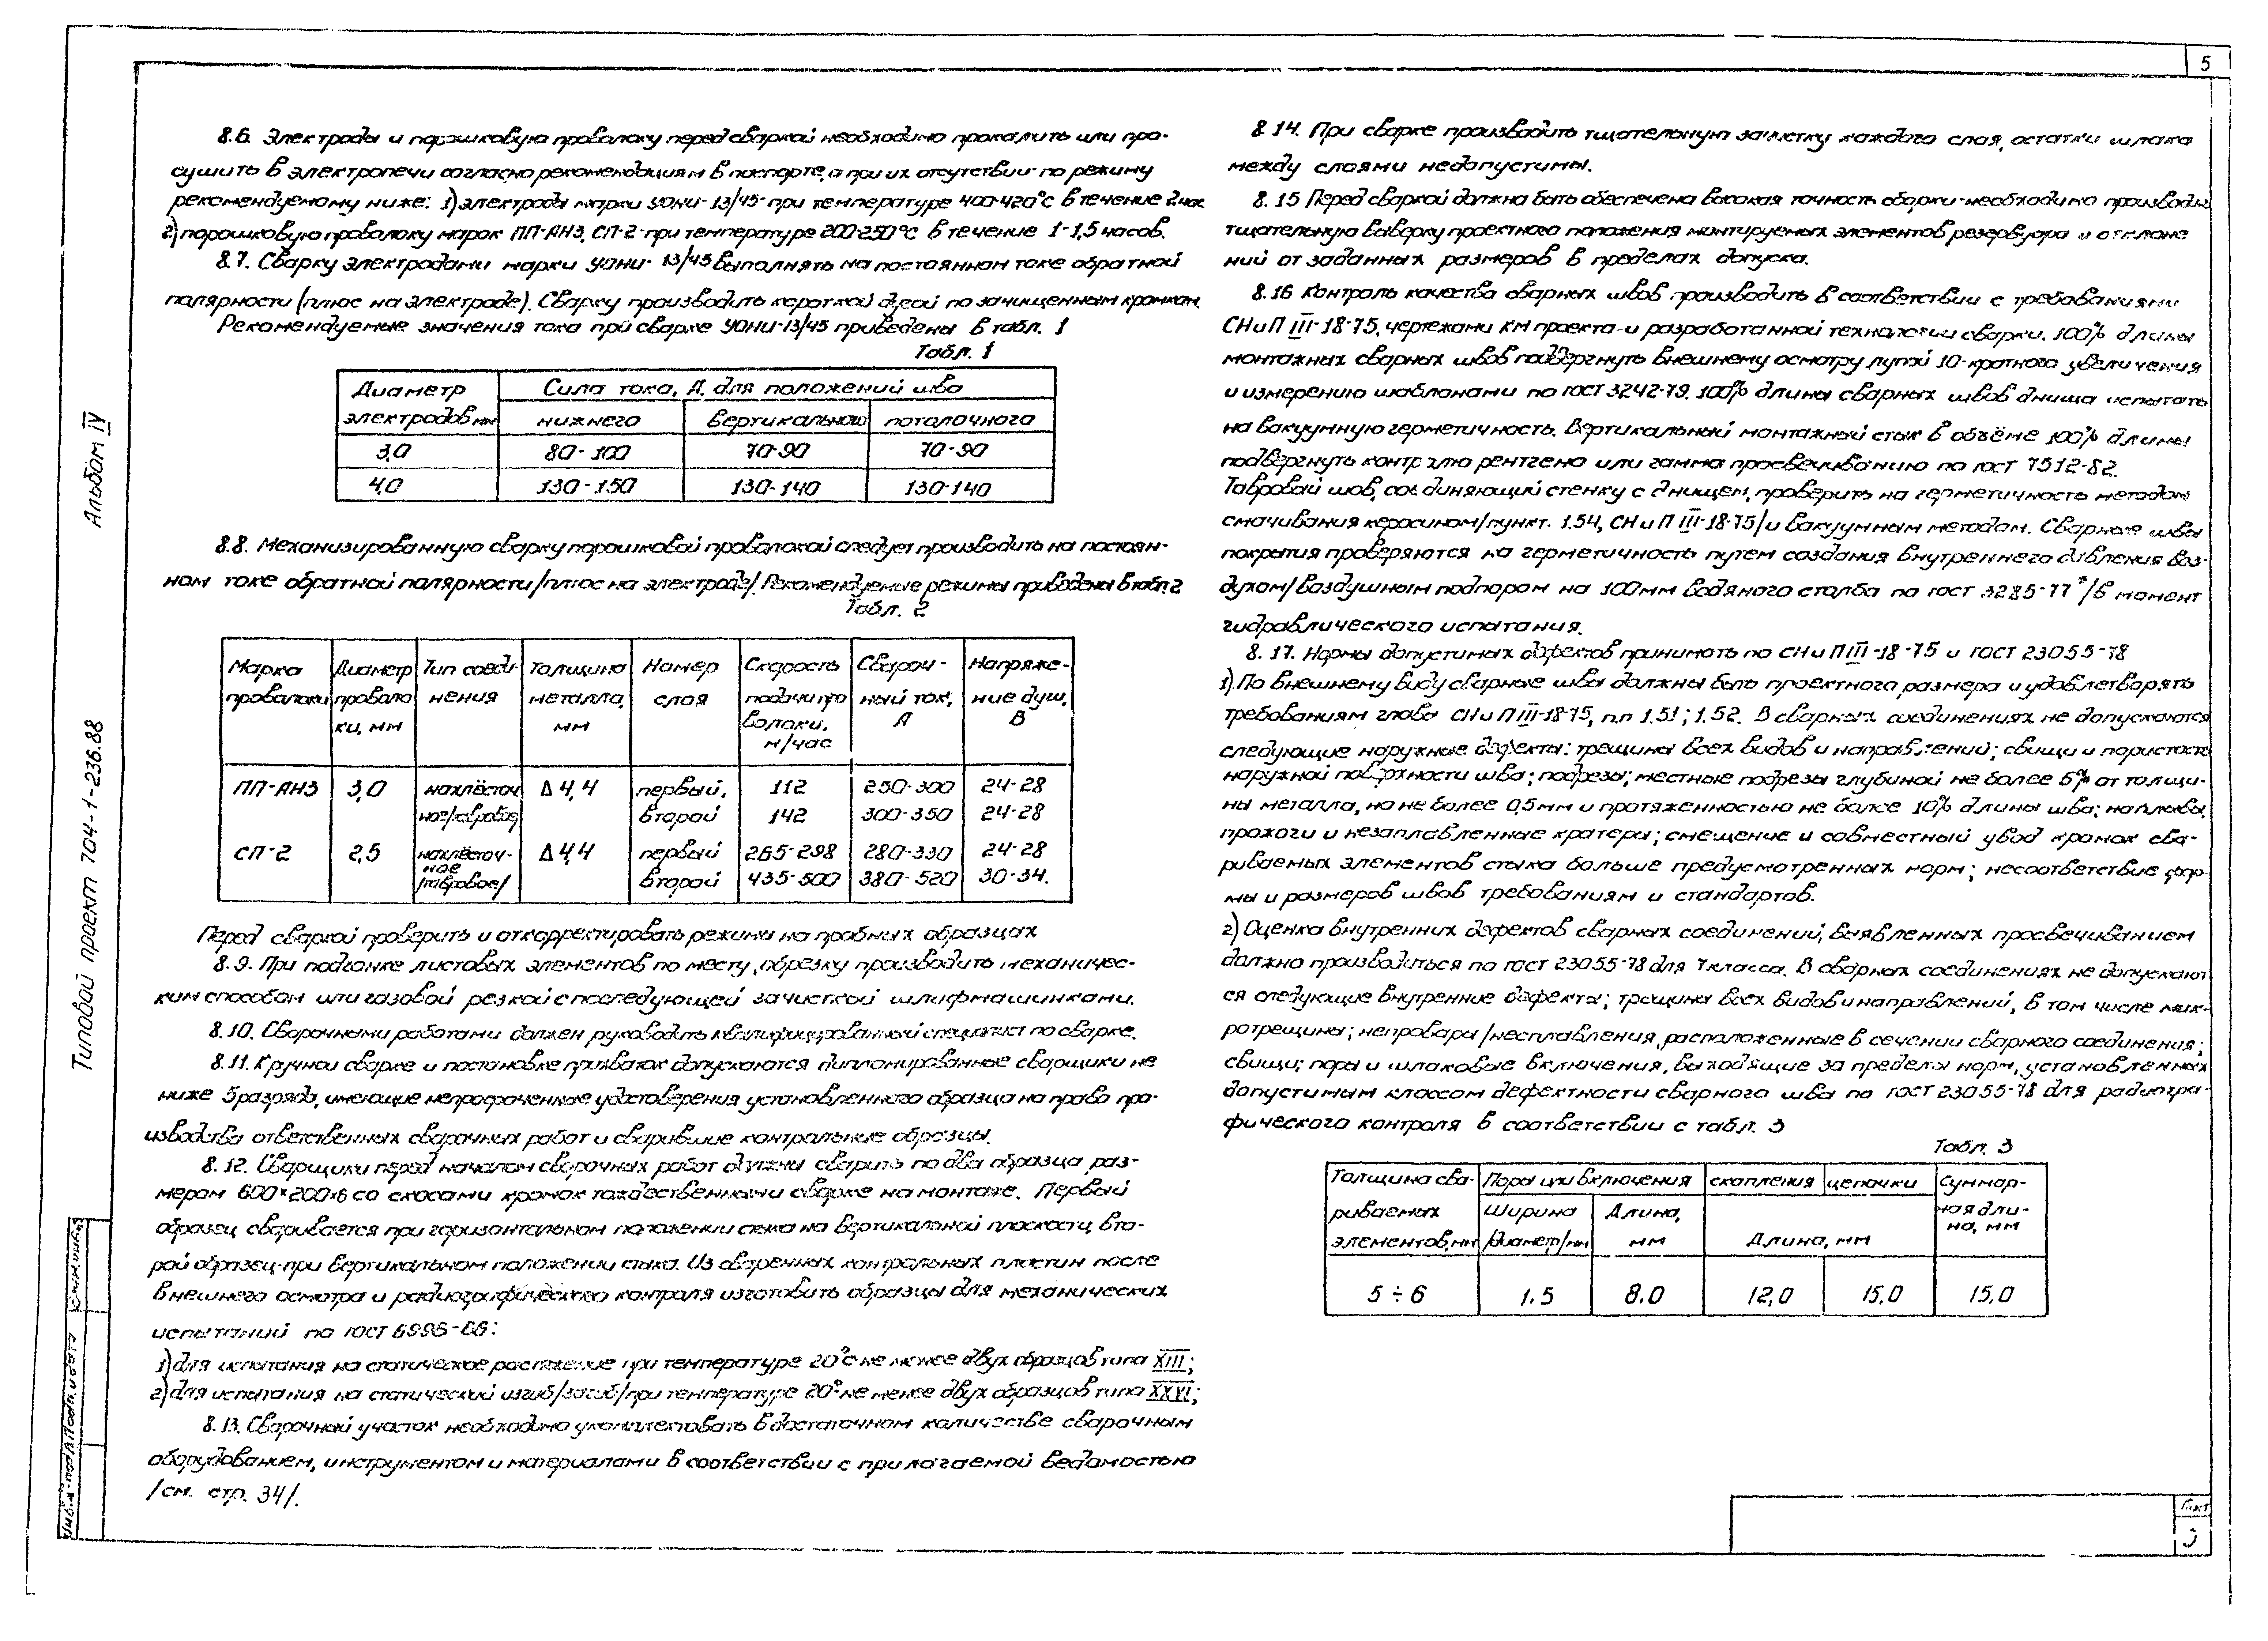 5
8.6. Электроды и порошковую проволоку перед сваркой необходимо прокалить или про-
сушить в электропечи согласно рекомендациям в паспорте, а при их отсутствии по режиму
рекомендуемому ниже: 1) электроды марки УОНИ-13/45-при температуре 400-420°С в течение 2час
2) порошковую проволоку марок ПП-АН3, СП-2-при температуре 200-250°С в течение 1-1,5 часов.
8.7. Сварку электродами марки УОНИ-13/45 выполнять на постоянном токе обратной
полярности (плюс на электроде). Сварку производить короткой дугой по зачищенным кромкам.
Рекомендуемые значения тока при сварке УОНИ-13/45 приведены в табл. 1
Табл. 1
Диаметр Сила тока, А, для положений шва
электродов мм нижнего вертикального потолочного
3,0 80-100 70-90 70-90
4,0 130-150 130-140 130-140
8.8. Механизированную сварку порошковой проволокой следует производить на постоян-
ном токе обратной полярности /плюс на электроде/. Рекомендуемые режимы приведены в табл. 2
Табл. 2
Марка Диаметр Тип соеди- Толщина Номер Скорость Свароч- Напряже-
проволоки проволо нения металла, слоя подачи про ный ток, ние дуги,
ки, мм мм волоки, А В
м/час
ПП-АН3 3,0 нахлёсточ Δ 4,4 первый, 112 250-300 24-28
ное/тавровое/ второй 142 300-350 24-28
СП-2 2,5 нахлёсточ- Δ 4,4 первый 265-298 280-330 24-28
ное
/тавровое/ второй 435-500 380-520 30-34.
Перед сваркой проверить и откорректировать режимы на пробных образцах
8.9. При подгонке листовых элементов по месту, обрезку производить механичес-
ким способом или газовой резкой с последующей зачисткой шлифмашинками.
8.10. Сварочными работами должен руководить квалифицированный специалист по сварке.
8.11. К ручной сварке и постановке прихваток допускаются дипломированные сварщики не
ниже 5 разряда, имеющие непросроченные удостоверения установленного образца на право про-
изводства ответственных сварочных работ и сварившие контрольные образцы.
8.12. Сварщики перед началом сварочных работ должны сварить по два образца раз-
мером 600×200×6 со скосами кромок тождественными сварке на монтаже. Первый
образец сваривается при горизонтальном положении стыка на вертикальной плоскости, вто-
рой образец-при вертикальном положении стыка. Из сваренных контрольных пластин после
внешнего осмотра и радиографического контроля изготовить образцы для механических
испытаний по ГОСТ 6996-66:
1) для испытания на статическое растяжение при температуре 20°С не менее двух образцов типа XIII;
2) для испытания на статический изгиб/загиб/при температуре 20° не менее двух образцов типа XXVI;
8.13. Сварочный участок необходимо укомплектовать в достаточном количестве сварочным
оборудованием, инструментом и материалами в соответствии с прилагаемой ведомостью
/см. стр. 34/.
8.14. При сварке производить тщательную зачистку каждого слоя, остатки шлака
между слоями недопустимы.
8.15 Перед сваркой должна быть обеспечена высокая точность сборки-необходимо производить
тщательную выверку проектного положения монтируемых элементов резервуара и отклоне
ний от заданных размеров в пределах допуска.
8.16 Контроль качества сварных швов производить в соответствии с требованиями
СНиП III-18-75, чертежами КМ проекта и разработанной технологии сварки. 100% длины
монтажных сварных швов подвергнуть внешнему осмотру лупой 10-кратного увеличения
и измерению шаблонами по ГОСТ 3242-79. 100% длины сварных швов днища испытать
на вакуумную герметичность. Вертикальный монтажный стык в объёме 100% длины
подвергнуть контролю рентгено или гамма просвечиванию по ГОСТ 7512-82.
Тавровый шов, соединяющий стенку с днищем, проверить на герметичность методом
смачивания керосином/пункт. 1.54, СНиП III-18-75/и вакуумным методом. Сварные швы
покрытия проверяются на герметичность путем создания внутреннего давления воз-
духом/воздушным подпором на 100мм водяного столба по ГОСТ 3285-77*/в момент
гидравлического испытания.
8.17. Нормы допустимых дефектов принимать по СНиП III-18-75 и ГОСТ 23055-78
1). По внешнему виду сварные швы должны быть проектного размера и удовлетворять
требованиям главы СНиП III-18-75, п.п 1.51; 1.52. В сварных соединениях не допускаются
следующие наружные дефекты: трещины всех видов и направлений; свищи и пористость
наружной поверхности шва; подрезы; местные подрезы глубиной не более 5% от толщи-
ны металла, но не более 0,5мм и протяженностью не более 10% длины шва; наплывы,
прожоги и незаплавленные кратеры; смещение и совместный увод кромок сва-
риваемых элементов стыка больше предусмотренных норм; несоответствие фор-
мы и размеров швов требованиям и стандартов.
2) Оценка внутренних дефектов сварных соединений, выявленных просвечиванием
должно производиться по ГОСТ 23055-78 для класса. В сварных соединениях не допускают
ся следующие внутренние дефекты; трещины всех видов и направлений, в том числе мик-
ротрещины; непровары/несплавления, расположенные в сечении сварного соединения;
свищи; поры и шлаковые включения, выходящие за пределы норм, установленных
допустимым классом дефектности сварного шва по ГОСТ 23055-78 для радиогра-
фического контроля в соответствии с табл. 3
Табл. 3
Толщина сва- Поры или включения скопления цепочки Суммар-
риваемых Ширина Длина, ная дли-
элементов, мм /диаметр/мм мм Длина, мм на, мм
5 ÷ 6 1.5 8.0 12,0 15,0 15,0
Альбом IV
Типовой проект 704-1-236.88
Взам.инв.№
Подп. и дата
Инв.№ подл.
Лист
3